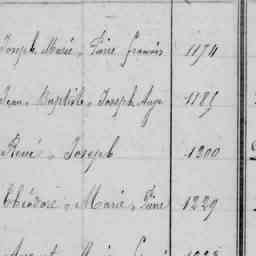 Joseph Marie Pierre francois 1174
Jean Baptiste Joseph Ange 1189
René Joseph 1300
Théodore Marie Pierre 1229